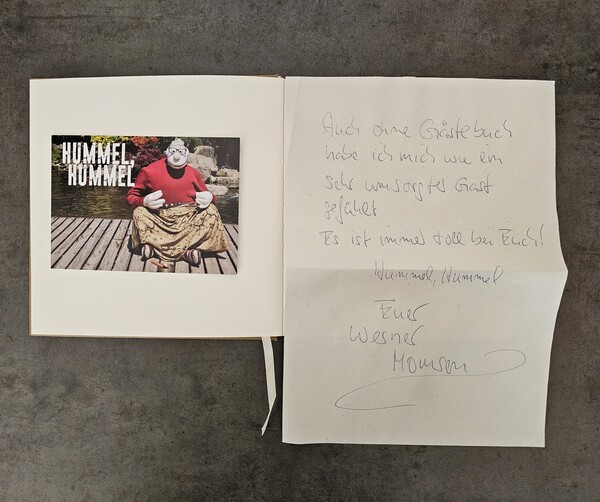 HUMMEL,
HUMMEL
Auch ohne Gästebuch
habe ich mich wie ein
sehr umsorgter Gast
gefühlt
Es ist immer toll bei Euch!
Hummel, Hummel
Euer
Werner
Momsen